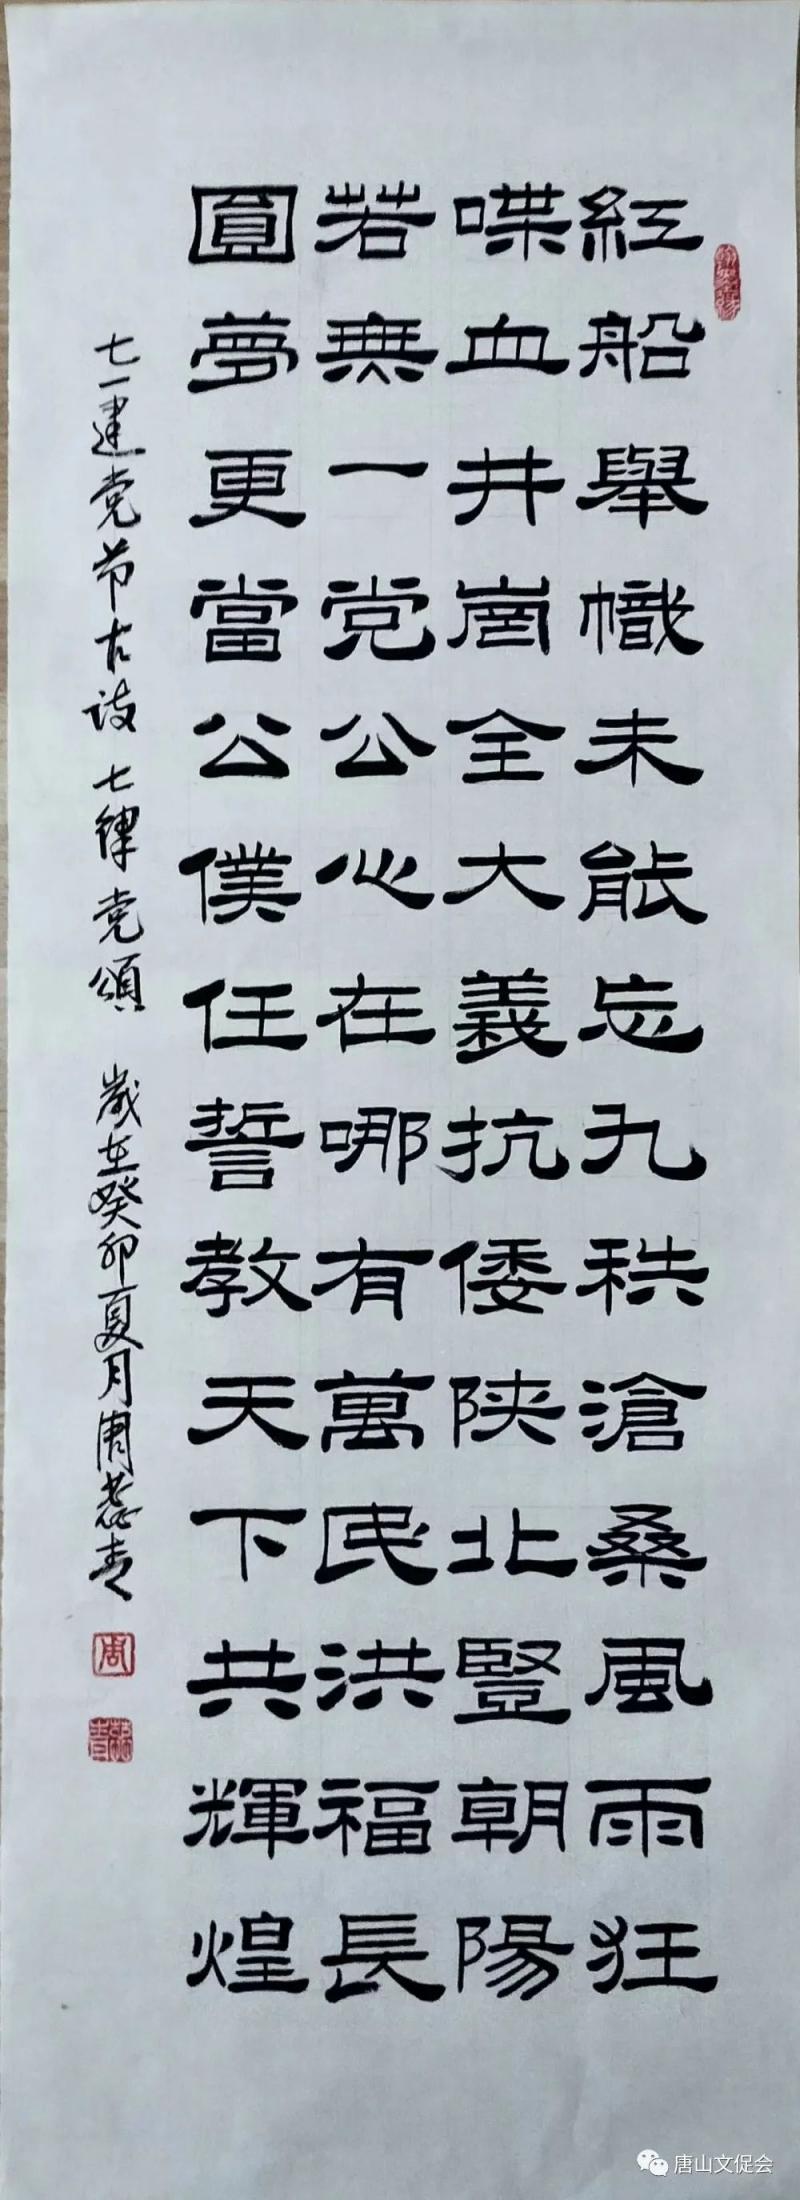 紅船舉幟未能忘九秩滄桑風雨狂
喋血井崗全大義抗倭陕北豎朝陽
若無一党公心在哪有萬民洪福長
圓夢更當公僕任誓教天下共輝煌
七一建党节古诗 七律党頌 歲在癸卯夏月周蕊青
周
唐山文促会